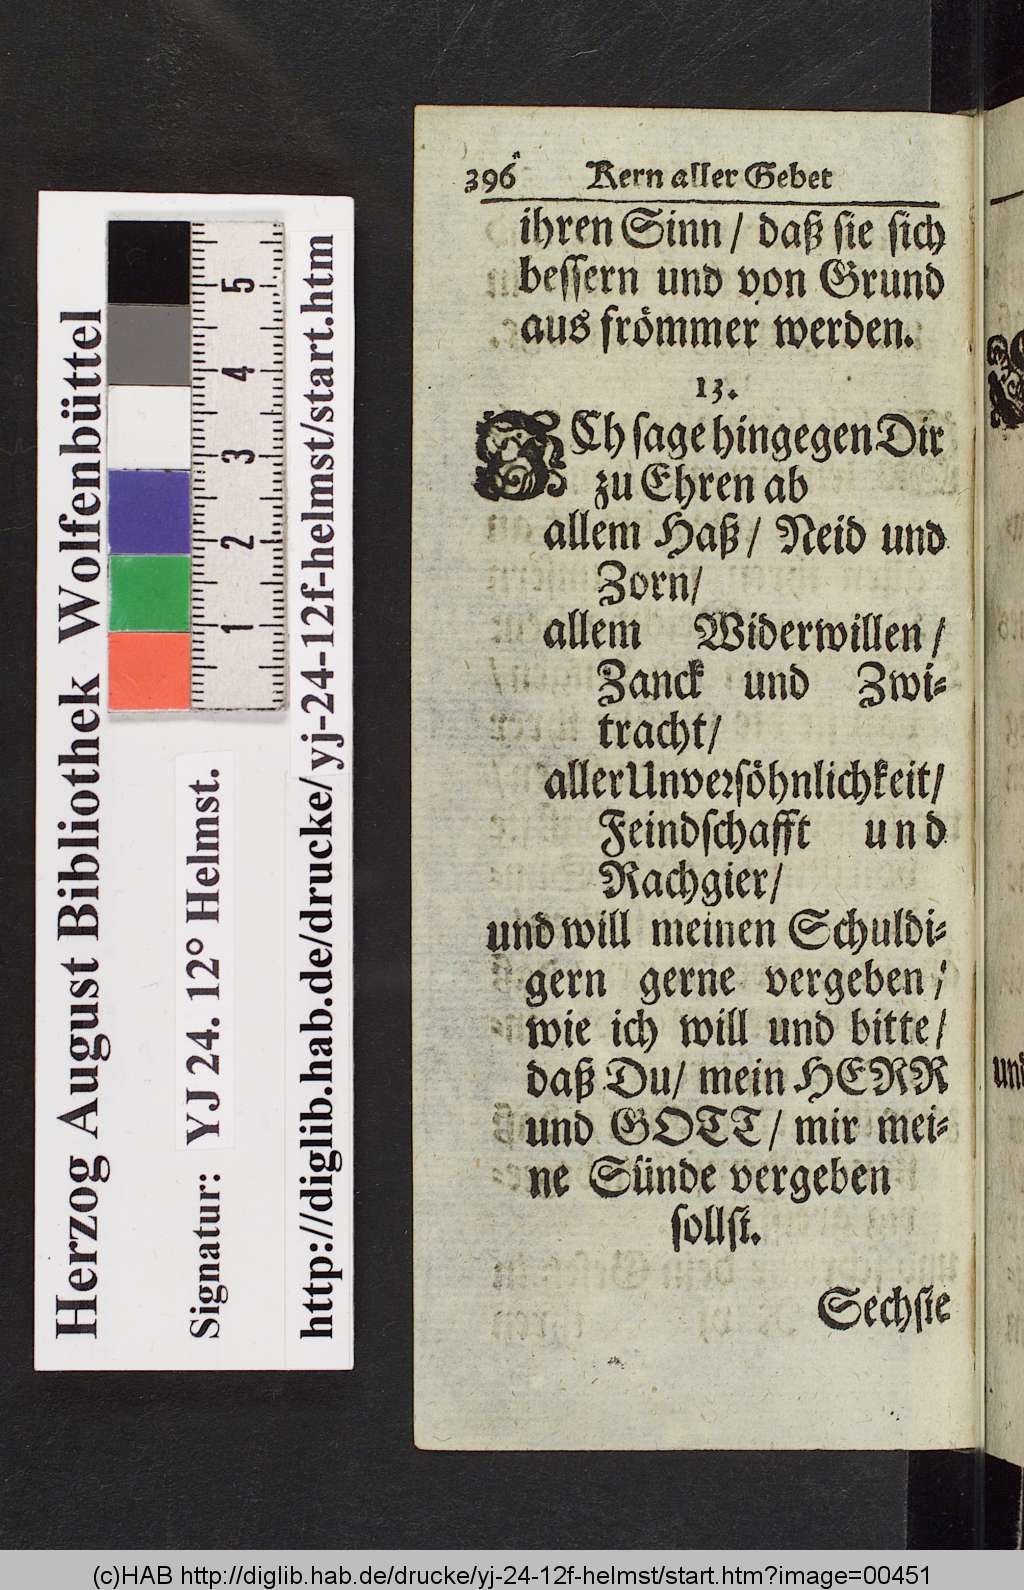 Herzog August Bibliothek Wolfenbüttel
Signatur: YJ 24. 12° Helmst.
http://diglib.hab.de/drucke/yj-24-12f-helmst/start.htm
1 2 3 4 5
396 Kern aller Gebet
ihren Sinn / daß sie sich
bessern und von Grund
aus frömmer werden.
13.
ICh sage hingegen Dir
zu Ehren ab
allem Haß / Neid und
Zorn/
allem Widerwillen /
Zanck und Zwi⸗
tracht/
aller Unversöhnlichkeit/
Feindschafft und
Rachgier/
und will meinen Schuldi⸗
gern gerne vergeben /
wie ich will und bitte/
daß Du/ mein HERR
und GOTT/ mir mei⸗
ne Sünde vergeben
sollst.
Sechste
und
(c)HAB http://diglib.hab.de/drucke/yj-24-12f-helmst/start.htm?image=00451